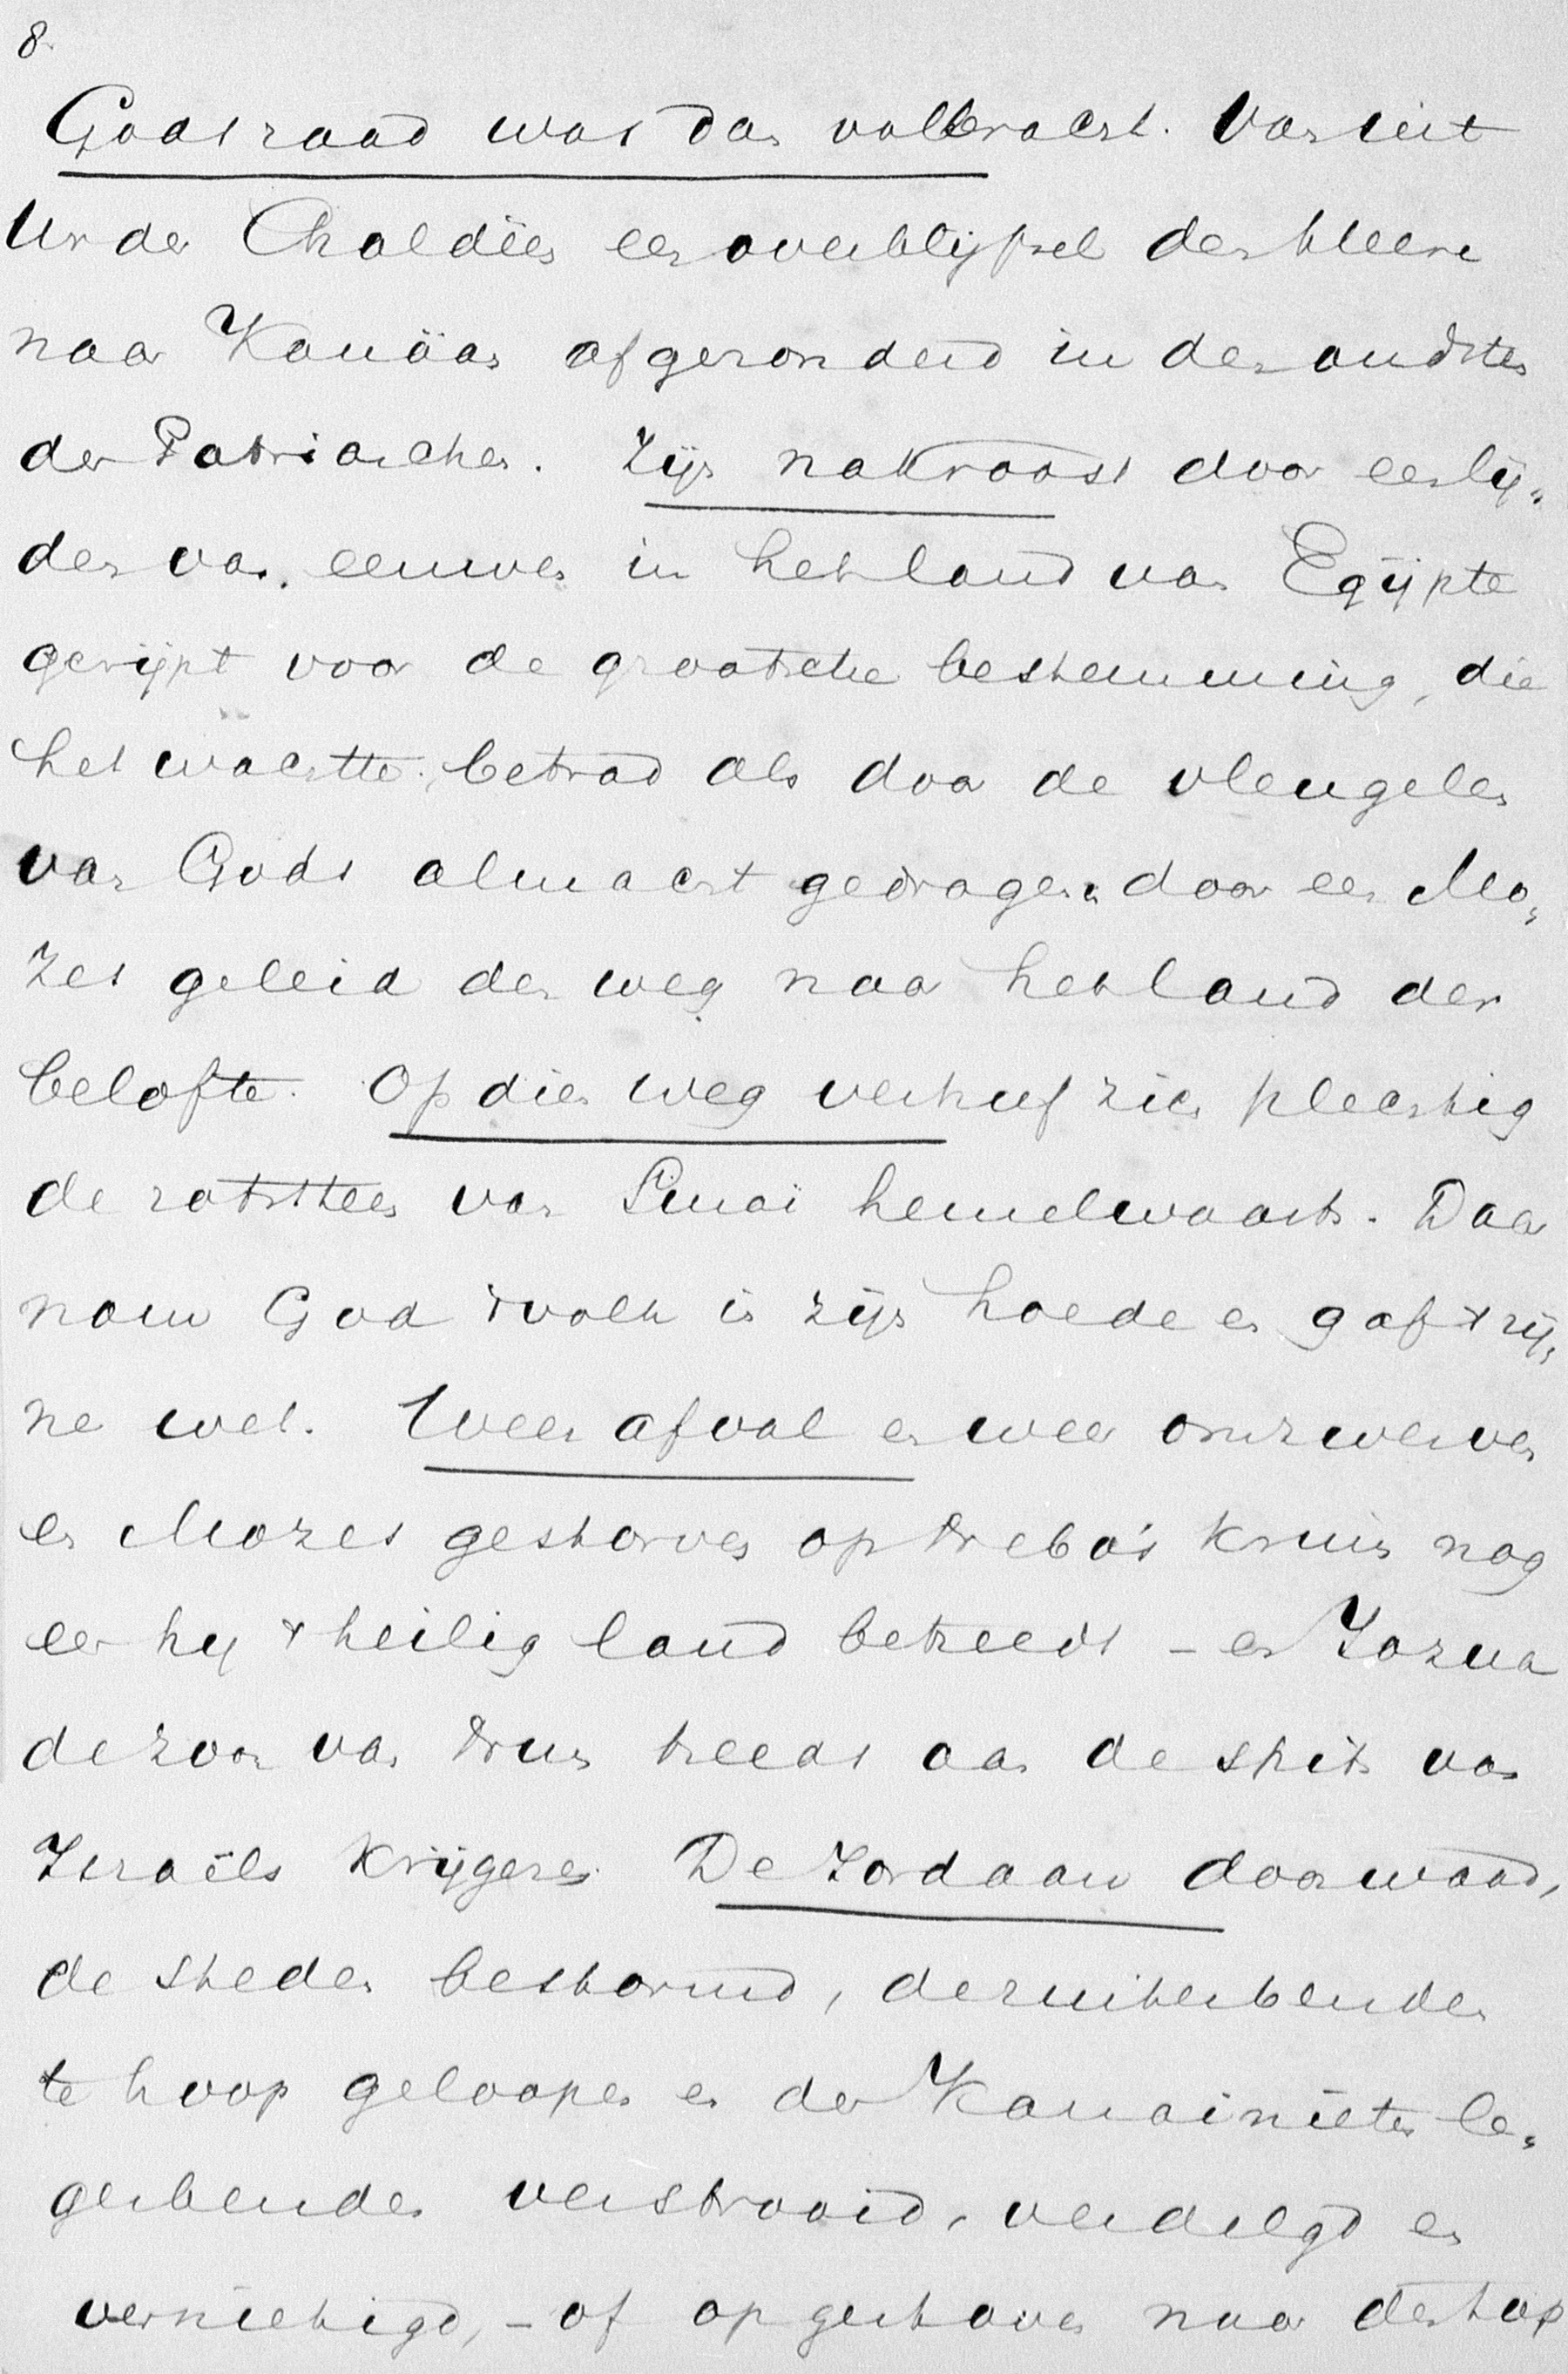 8.
Gods raad was dan volbracht. Van uit
Ur der Chaldëen een overblijfsel des Heere
naar Kanäan afgezonderd in den oudsten
der Patriarchen. Zijn nakroost door een lij„
den van eeuwen in het land van Egijpte
gerijpt voor de grootsche bestemming, die
het wachtte, betrad als door de vleugelen
van Gods almacht gedragen door een Mo„
zes geleid den weg naar het land der
belofte. Op dien weg verhief zich plechtig
de rotssteen van Sinaï hemelwaarts. Daar
nam God 't volk in zijn hoede en gaf 't zij„
ne wet. Weer afval en weer omzwerven
en Mozes gestorven op Nebo's kruin nog
eer hij 't heilig land betreedt – en Jozua
de zoon van Nun treedt aan de spits van
Israëls krijgeren. De Jordaan doorwaad,
de steden bestormd, de ruiterbenden
te hoop geloopen en der Kanaänieten le„
gerbenden verstrooid, verdelgd en
vernietigd, – of opgeschoven naar den top